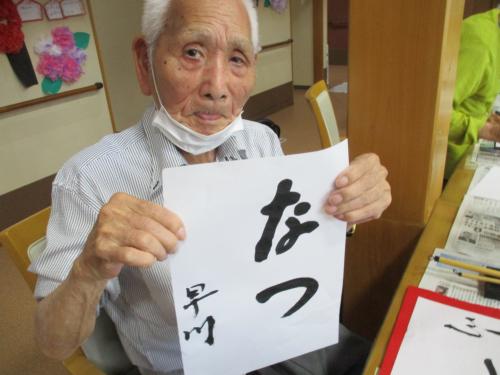 なつ
早川